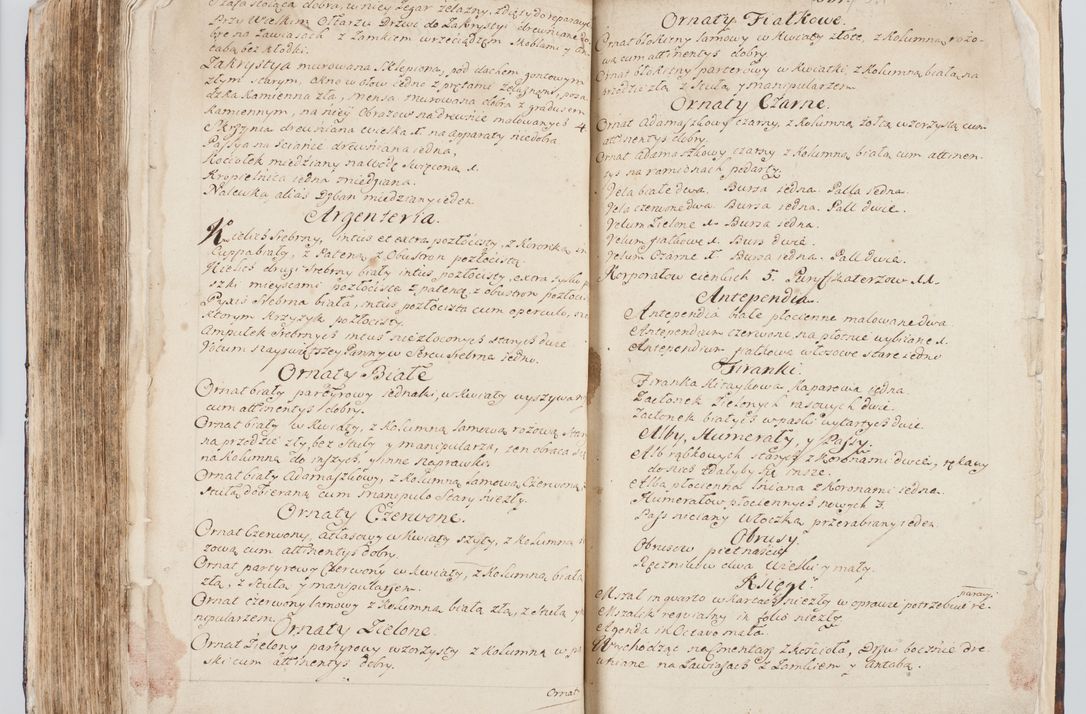 Szafa stoiąca dobra, w niey Zegar żelazny, zdięty do reparacyi
Przy Wielkim Ołtarzu Drzwi do Zakrystyi drewniane do-
bre na Zawiasach z Zamkiem wrzeciądzem Skoblami y An-
tabą bez kłodki.
Zakrystya murowana Sklepiona, pod dachem gontowym
złym starym, okno w ołow iedne z prętami żelaznemi, posa-
dzka kamienna zła, mensa murowana dobra z gradusem
kamiennym, na niey Obrazow na drewnie malowanych 4.
Skrzynia drewniana wielka 1. na apparaty niedobra
Passya na ścianie drewniana iedna,
Kociołek miedziany na wodę święconą 1.
Kropielnica iedna miedziana.
Nalewka alias Dzban miedziany ieden.
Argenteria.
Kielich Srebrny, intus et extra pozłocisty, z Koronką in
Cuppa biały, z Pateną z Obustron pozłocistą
Kielich drugi Srebrny biały intus pozłocisty, extra tylko
szki mieyscami pozłocista z pateną, z obustron pozłoci-
Pyxis Srebrna biała, intus pozłozista cum operculo, na
ktorym Krzyżyk pozłocisty.
Ampułek Srebrnych intus nie złoconych starych dwie
Votum Nayswiętszey Panny w Sercu Srebrne iedno.
Ornaty Białe
Ornat biały partyrowy iednaki, w kwiaty wyszywany
cum attinentys dobry.
Ornat biały w kwiaty, z Kolumną lamową rożową, Stary
na przodzie zły bez Stuły y manipularza, ten obraca się
na Kolumnę do inszych, y inne naprawki.
Ornat biały Adamaszkowy, z Kolumną lamową Czerwoną
Stułą dobieraną cum Manipulo Stary niezły.
Ornaty Czerwone.
Ornat Czerwony, atłasowy w kwiaty szyty, z Kolumną
zową cum attinentys dobry
Ornat partyrowy Czerwony w kwiaty, z Kolumną białą
zła, z Stułą y manipularzem.
Ornat czerwony lamowy z Kolumną białą złą, z Stułą y
nipularzem.
Ornaty Zielone.
Ornat Zielony partyrowy wzorzysty z Kolumną w pa-
ski cum attinentys dobry.
Ornat
Ornaty Fiałkowe.
Ornat błękitny lamowy w kwiaty złote, z Kolumną rożo-
wą cum attinentys dobry
Ornat błękitny parterowy w kwiatki, z Kolumną białą na
przodzie złą z Stułą y manipularzem
Ornaty Czarne.
Ornat Adamaszkowy czarny, z Kolumną żołtą wzorzystą cum
attinentys dobry
Ornat Adamaszkowy czarny z Kolumną białą cum attinen-
tys na ramionach podarty.
Vela białe dwa. Bursa iedna. Palla iedna.
Vela czerwone dwa. Bursa iedna. Pall dwie.
Velum Zielone 1. Bursa iedna.
Velum fiałkowe 1. Burs dwie.
Velum Czarne 1. Bursa iedna. Pall dwie.
Korporałow cienkich 5. Puryfikaterzow 11.
Antependia.
Antependia białe płocienne malowane dwa
Antependium czerwone na płotnie wybiiane 1.
Antependium fiałkowe włosowe stare iedno
Firanki.
Firanka Kitaykowa, Kaparowa iedna.
Zasłonek Zielonych rasowych dwie.
Zasłonek białych w paski wytartych dwie.
Alby, Humerały, y Passy.
Alb rąbkowych starych z Koronami dwie, rękawy
do nich zdałyby się insze.
Alba płocienna lniana z Koronami iedna.
Humerałow płociennych nowych 3.
Pass niciany włoczką przerabiany ieden.
Obrusy
Obrusow pietnaście
Ręcznikow dwa wielki y mały.
Księgi
Mszał in quarto w kartach niezły w oprawie potrzebuie re-
paracyi
Mszalik requialny in folio niezły
Agenda in Octavo mała.
Wchodząc na Smentarz z kościoła, Drzwi bocznie dre-
wniane na Zawiasach z Zamkiem y antabą.